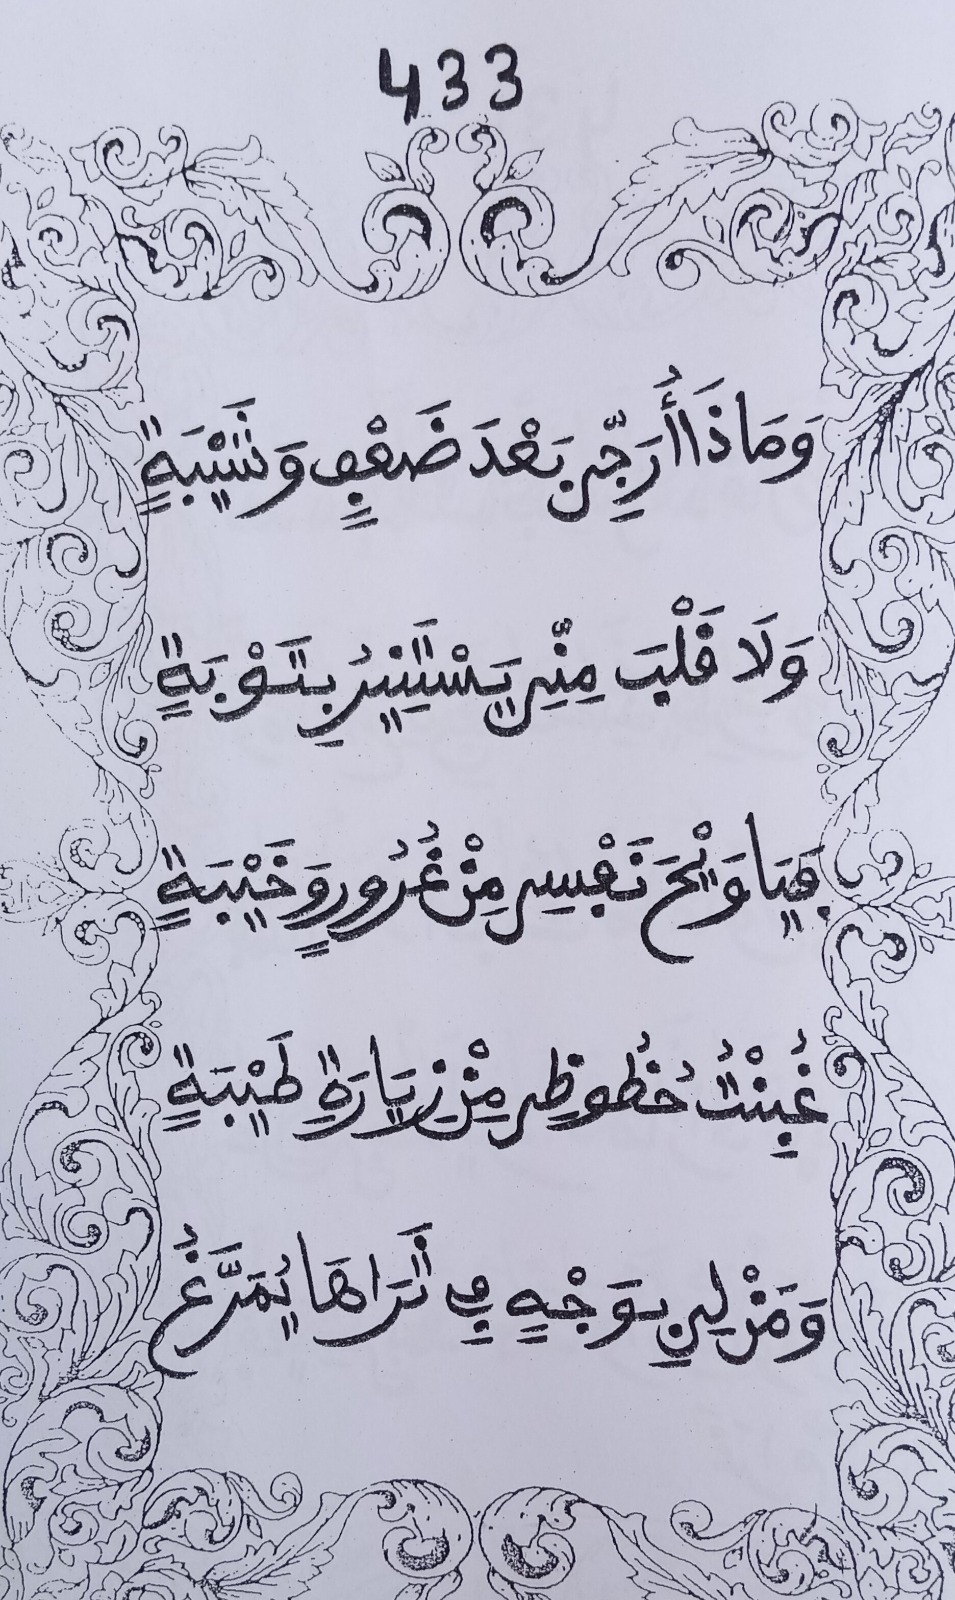 433
وَمَاذَا أُرَجِّي بَعْدَ ضَعْفٍ وَشَيْبَةٍ
وَلَا قَلْبَ مِنِّي يَسْتَنِيرُ بِتَوْبَةٍ
فَيَا وَيْحَ نَفْسِي مِنْ غُرُورٍ وَخَيْبَةٍ
غُبِنْتُ حُظُوظِي مِنْ زِيَارَةِ طَيْبَةٍ
وَمَنْ لِي بِوَجْهٍ فِي ثَرَاهَا يُمَرَّغُ